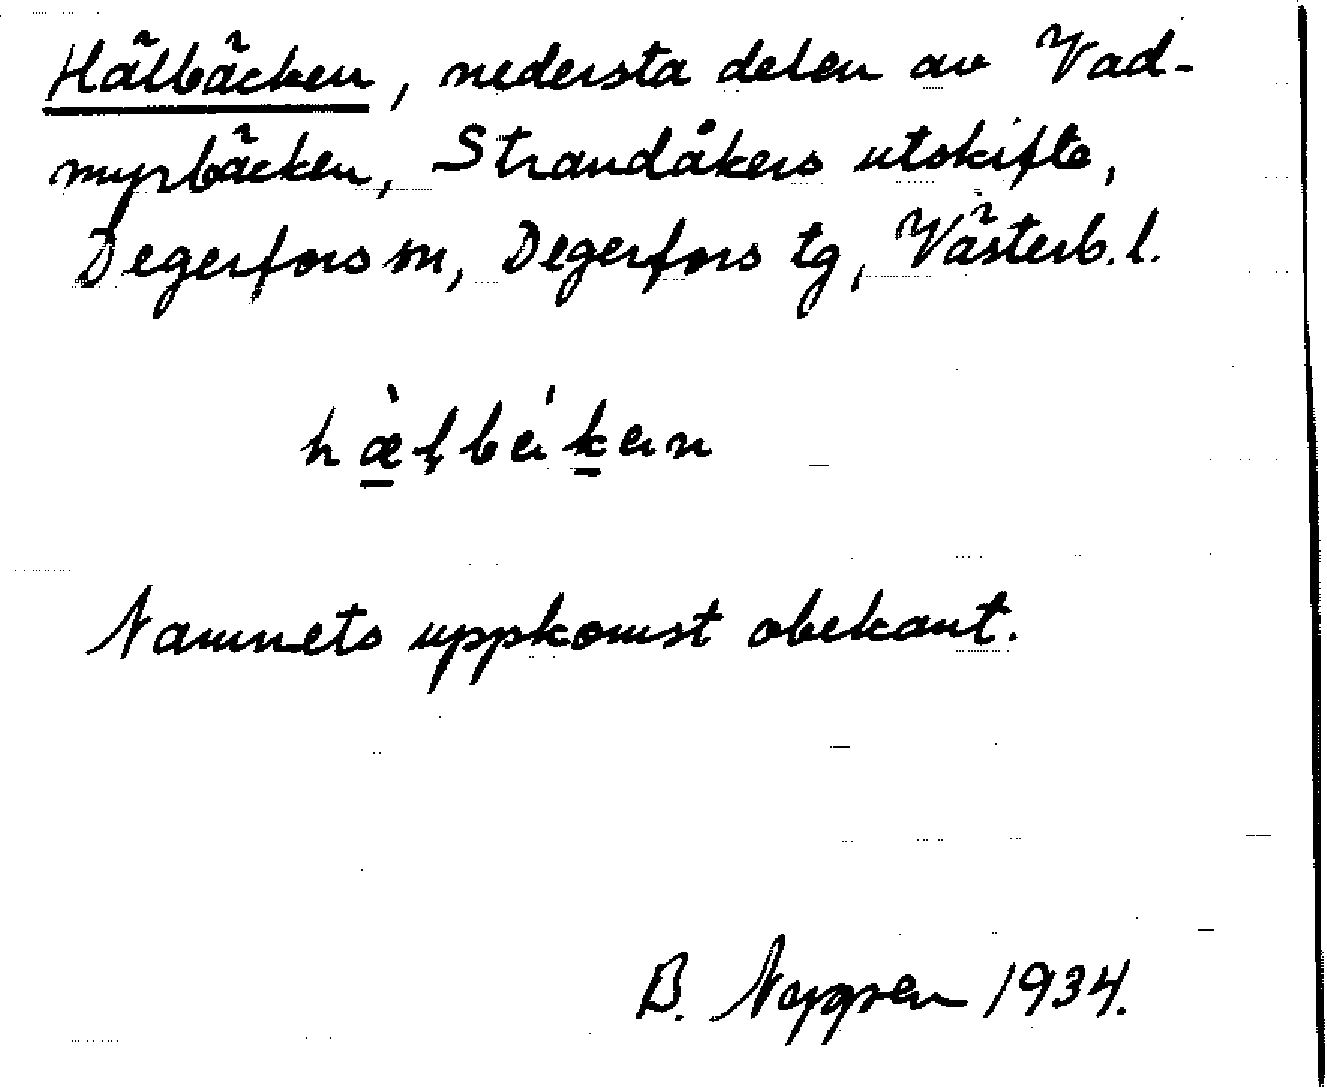 Hälbäcken, nedersta delen av Vad-
myrbäcken, Strandåkers utskifte,
Degerfors sn, Degerfors tg, Västerb. l.
Namnets uppkomst obekant.
B. 1934.